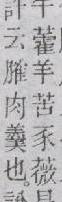 牛藿羊苦豕薇
云肉羹也